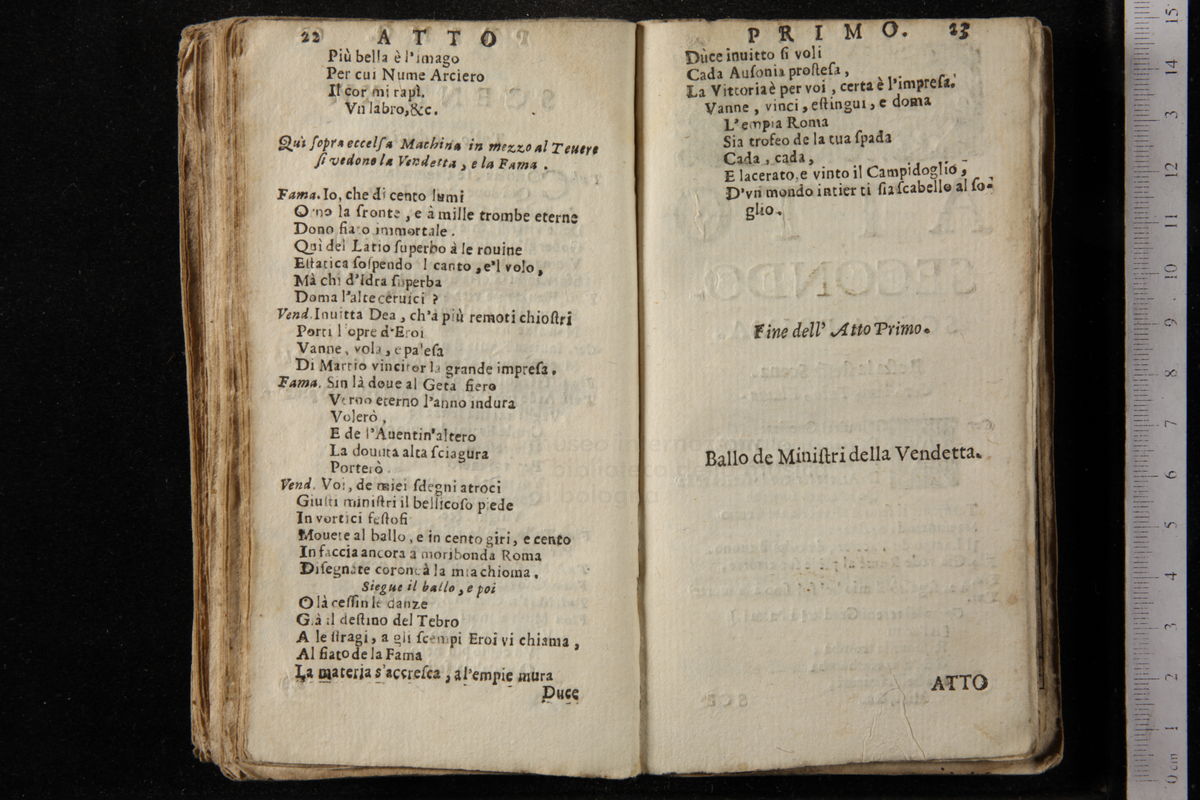 22 ATTO
Più bella è l'imago
Per cui Nume Arciero
Il cor mi rapì.
Vn labro,&c.
Quì ſopra eccelſa Machina in mezzo al Teuere
ſi vedono la Vendetta, e la Fama.
Fama. Io, che di cento lumi
Orno la fronte, e à mille trombe eterne
Dono fiato immortale.
Quì del Latio ſuperbo à le rouine
Eſtatica ſoſpendo l canto, e'l volo,
Mà chi d'Idra ſuperba
Doma l'alte ceruici?
Vend. Inuitta Dea, ch'à più remoti chioſtri
Porti l'opre d'Eroi
Vanne, vola, e paleſa
Di Martio vincitor la grande impreſa.
Fama. Sin là doue al Geta fiero
Verno eterno l'anno indura
Volerò,
E de l'Auentin'altero
La douuta alta ſciagura
Porterò.
Vend. Voi, de miei ſdegni atroci
Giuſti miniſtri il bellicoſo piede
In vortici feſtoſi
Mouete al ballo, e in cento giri, e cento
In faccia ancora a moribonda Roma
Diſegnate corone à la mia chioma.
Siegue il ballo, e poi
Olà ceſſin le danze
Già il deſtino del Tebro
A le ſtragi, a gli ſcempi Eroi vi chiama,
Al fiato de la Fama
La materia s'accreſca, a l'empie mura
Duce
PRIMO. 23
Duce inuitto ſi voli
Cada Auſonia proſteſa,
La Vittoria è per voi, certa è l'impreſa.
Vanne, vinci, eſtingui, e doma
L'empia Roma
Sia trofeo de la tua ſpada
Cada, cada,
E lacerato, e vinto il Campidoglio,
D'vn mondo intier ti ſia ſcabello al ſo-
glio.
Fine dell' Atto Primo.
Ballo de Miniſtri della Vendetta.
ATTO